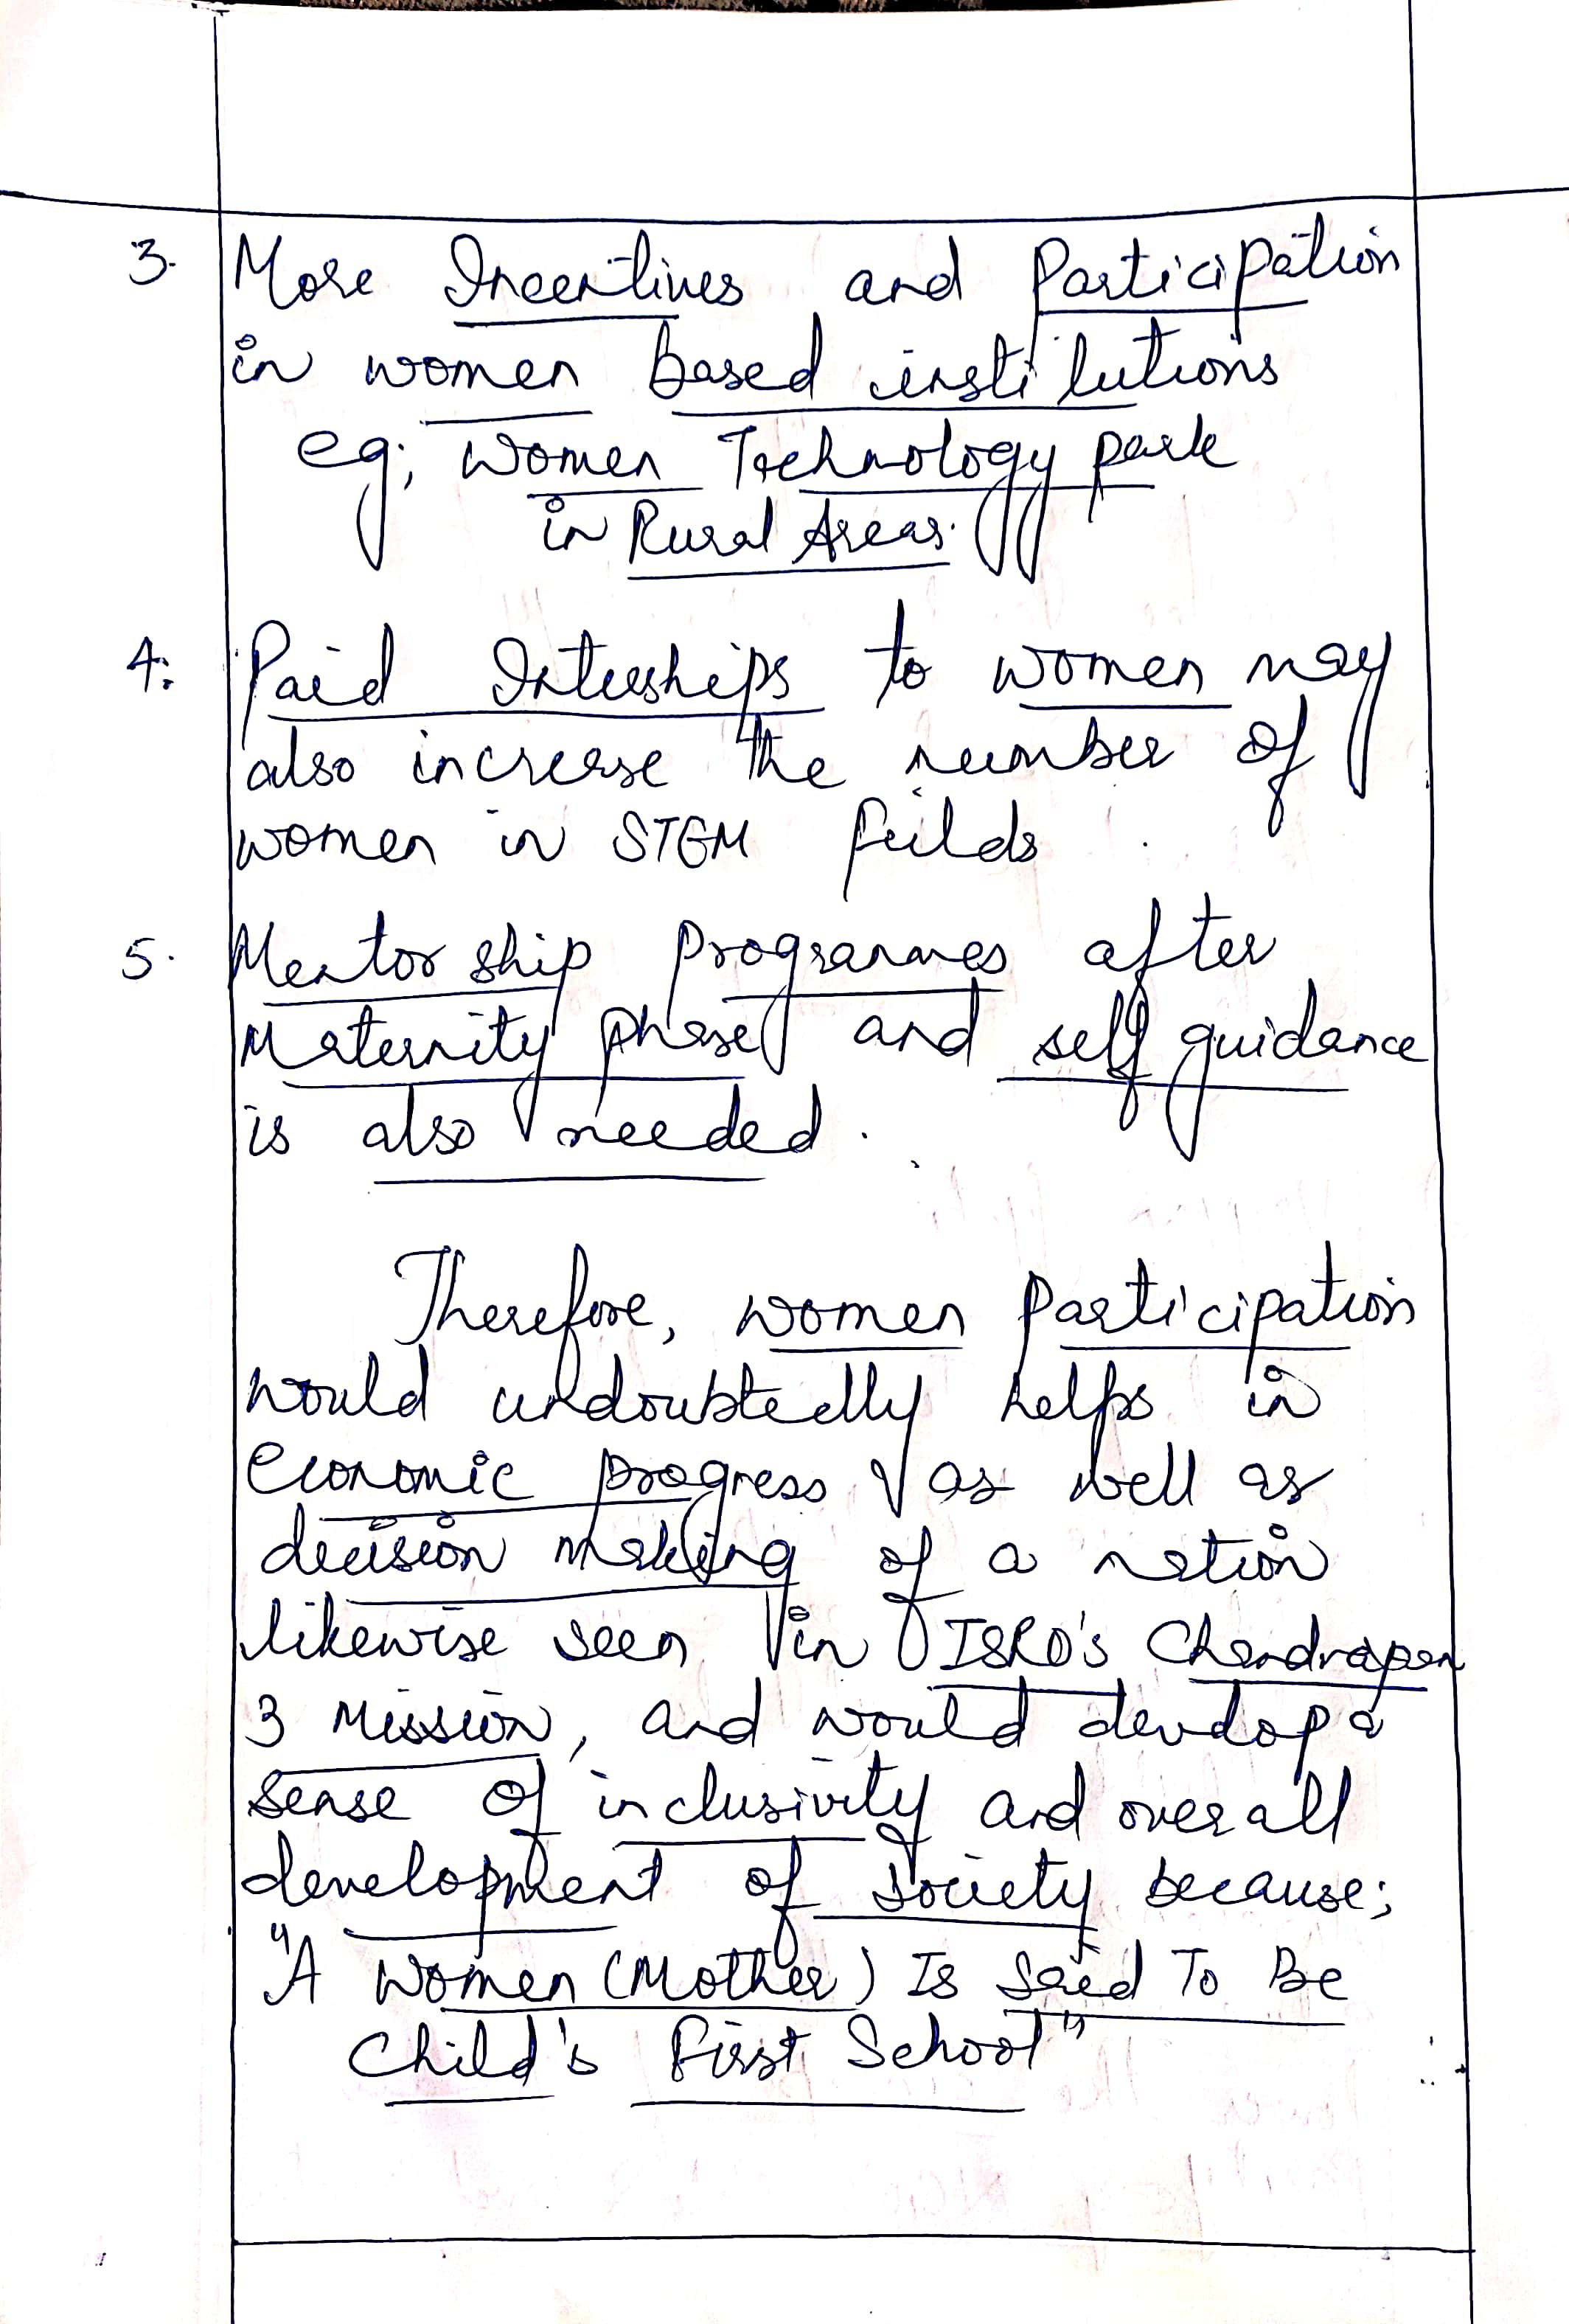 3. More Incentives and Participation
in women based institutions
eg; Women Technology park
in Rural Areas.
4. Paid Interships to women may
also increase the number of
women in STEM feilds
5. Mentor ship programmes after
Maternity phase and self guidance
is also needed.
Therefore, women Participation
would undoubtedly helps in
economic progress as well as
decision making of a nation
likewise seen in ISRO's Chandrayan
3 Mission, and would develop a
sense of inclusivity and overall
development of society because;
"A Women (Mother) Is Said To Be
Child's First School"